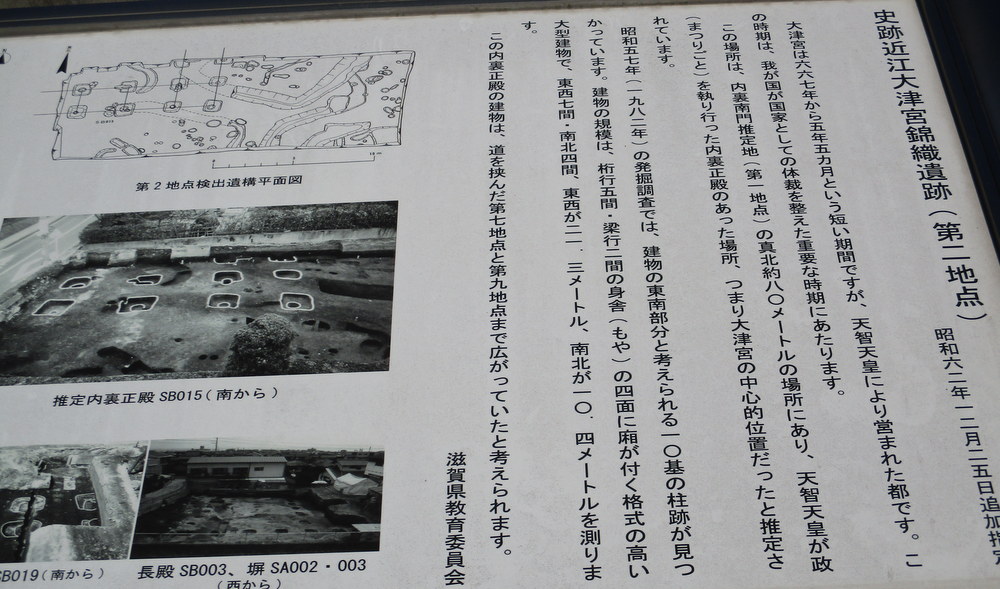 史跡近江大津宮錦織遺跡（第二地点）
昭和六二年一二月二五日追加指定
大津宮は六六七年から五年五カ月という短い期間ですが、天智天皇により営まれた都です。こ
の時期は、我が国が国家としての体裁を整えた重要な時期にあたります。
この場所は、内裏南門推定地（第一地点）の真北約八〇メートルの場所にあり、天智天皇が政
（まつりごと）を執り行った内裏正殿のあった場所、つまり大津宮の中心的位置だったと推定さ
れています。
昭和五七年（一九八二年）の発掘調査では、建物の東南部分と考えられる一〇基の柱跡が見つ
かっています。建物の規模は、桁行五間・梁行二間の身舎（もや）の四面に廂が付く格式の高い
大型建物で、東西七間・南北四間、東西が二一．三メートル、南北が一〇．四メートルを測りま
す。
この内裏正殿の建物は、道を挟んだ第七地点と第九地点まで広がっていたと考えられます。
滋賀県教育委員会
第2地点検出遺構平面図
推定内裏正殿SB015（南から）
SB019（南から）
長殿SB003、塀SA002・003
（西から）